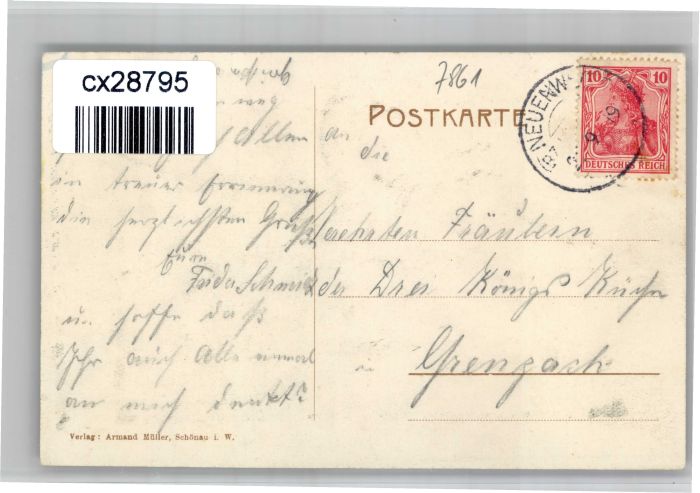 cx28795
7861
POSTKARTE
10 10
DEUTSCHES REICH
NEUENW
Allen
in treuer Erinnerung
die herzlichsten Grüße
Eure
Frida Schmid
u. hoffe daß
Ihr auch Alle einmal
an mich denkt?
an
die
geehrten Fräulein
der Drei Königs Küche
in Grenzach
Verlag: Armand Müller, Schönau i. W.